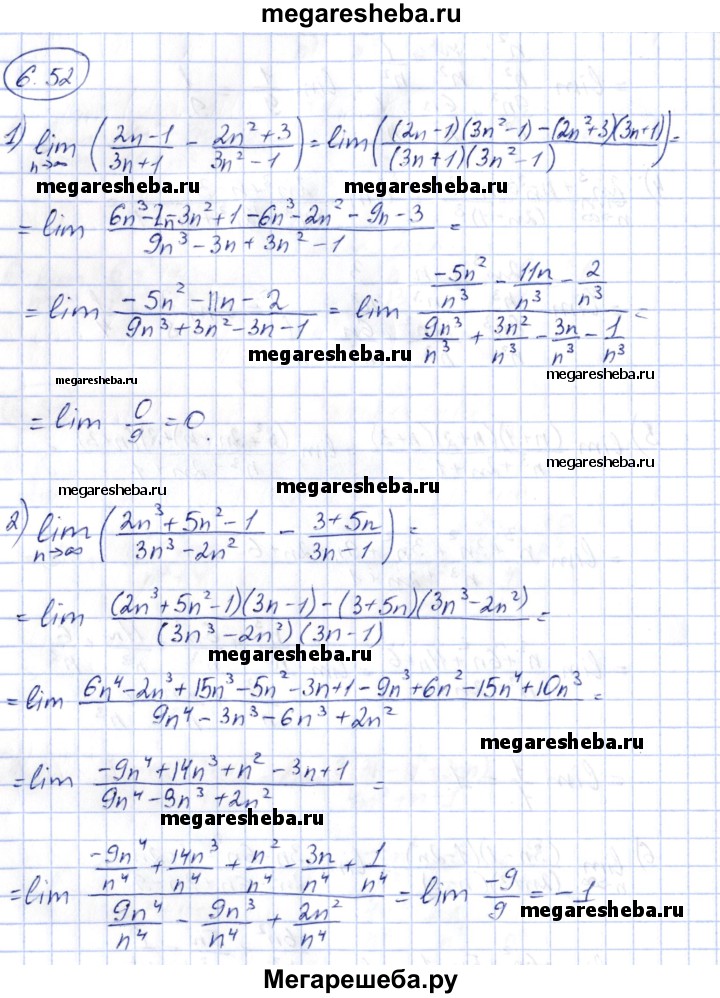 megaresheba.ru
6.52
1) lim n→∞ ( (2n-1)/(3n+1) - (2n²+3)/(3n²-1) ) = lim ( ((2n-1)(3n²-1)-(2n²+3)(3n+1))/((3n+1)(3n²-1)) ) =
megaresheba.ru megaresheba.ru
= lim (6n³-2n-3n²+1-6n³-2n²-9n-3)/(9n³-3n+3n²-1) =
= lim (-5n²-11n-2)/(9n³+3n²-3n-1) = lim (-5n²/n³ - 11n/n³ - 2/n³)/(9n³/n³ + 3n²/n³ - 3n/n³ - 1/n³) =
megaresheba.ru
megaresheba.ru megaresheba.ru
= lim 0/9 = 0.
megaresheba.ru megaresheba.ru
2) lim n→∞ ( (2n³+5n²-1)/(3n³-2n²) - (3+5n)/(3n-1) ) =
= lim ((2n³+5n²-1)(3n-1)-(3+5n)(3n³-2n²))/((3n³-2n²)(3n-1)) =
megaresheba.ru
= lim (6n⁴-2n³+15n³-5n²-3n+1-9n³+6n²-15n⁴+10n³)/(9n⁴-3n³-6n³+2n²) =
megaresheba.ru
= lim (-9n⁴+14n³+n²-3n+1)/(9n⁴-9n³+2n²) =
megaresheba.ru
= lim (-9n⁴/n⁴ + 14n³/n⁴ + n²/n⁴ - 3n/n⁴ + 1/n⁴)/(9n⁴/n⁴ - 9n³/n⁴ + 2n²/n⁴) = lim -9/9 = -1
megaresheba.ru
Мегарешеба.ру